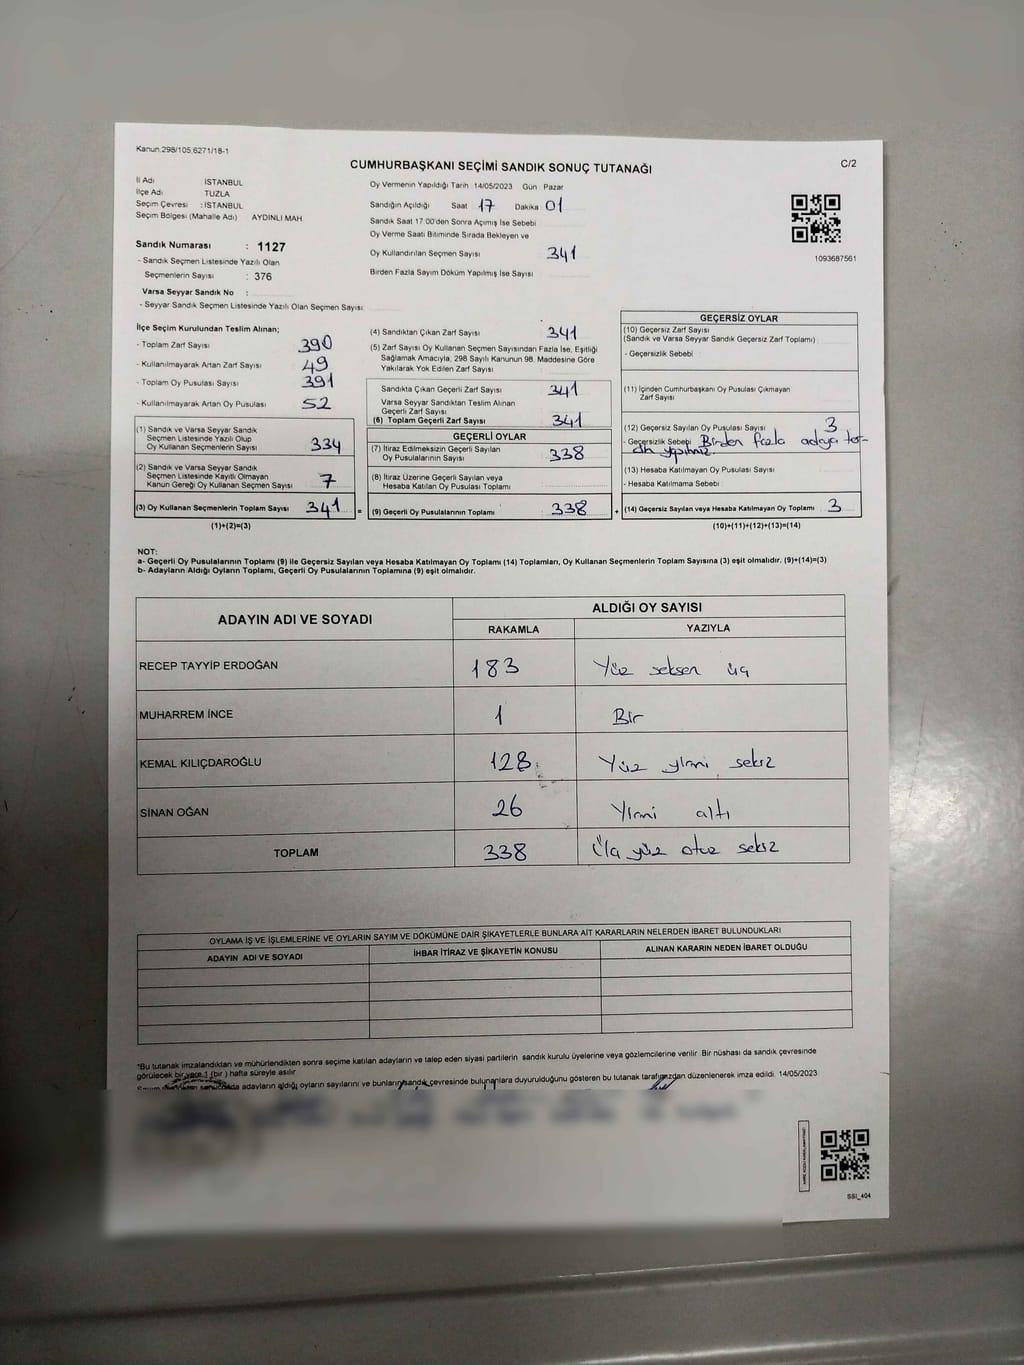 Kanun.298/105.6271/18-1
CUMHURBAŞKANI SEÇİMİ SANDIK SONUÇ TUTANAĞI
C/2
İl Adı İSTANBUL
İlçe Adı TUZLA
Seçim Çevresi : İSTANBUL
Seçim Bölgesi (Mahalle Adı) AYDINLI MAH
Sandık Numarası : 1127
- Sandık Seçmen Listesinde Yazılı Olan
Seçmenlerin Sayısı : 376
Varsa Seyyar Sandık No :
- Seyyar Sandık Seçmen Listesinde Yazılı Olan Seçmen Sayısı
Oy Vermenin Yapıldığı Tarih : 14/05/2023 Gün Pazar
Sandığın Açıldığı Saat 17 Dakika 01
Sandık Saat 17:00'den Sonra Açımış İse Sebebi
Oy Verme Saati Bitiminde Sırada Bekleyen ve
Oy Kullandırılan Seçmen Sayısı 341
Birden Fazla Sayım Döküm Yapılmış İse Sayısı
1093687561
İlçe Seçim Kurulundan Teslim Alınan;
- Toplam Zarf Sayısı 390
- Kullanılmayarak Artan Zarf Sayısı 49
- Toplam Oy Pusulası Sayısı 391
- Kullanılmayarak Artan Oy Pusulası 52
(1) Sandık ve Varsa Seyyar Sandık
Seçmen Listesinde Yazılı Olup
Oy Kullanan Seçmenlerin Sayısı 334
(2) Sandık ve Varsa Seyyar Sandık
Seçmen Listesinde Kayıtlı Olmayan
Kanun Gereği Oy Kullanan Seçmen Sayısı 7
(3) Oy Kullanan Seçmenlerin Toplam Sayısı 341 =
(1)+(2)=(3)
(4) Sandıktan Çıkan Zarf Sayısı 341
(5) Zarf Sayısı Oy Kullanan Seçmen Sayısından Fazla İse, Eşitliği
Sağlamak Amacıyla, 298 Sayılı Kanunun 98. Maddesine Göre
Yakılarak Yok Edilen Zarf Sayısı
Sandıkta Çıkan Geçerli Zarf Sayısı 341
Varsa Seyyar Sandıktan Teslim Alınan
Geçerli Zarf Sayısı
(6) Toplam Geçerli Zarf Sayısı 341
GEÇERLİ OYLAR
(7) İtiraz Edilmeksizin Geçerli Sayılan
Oy Pusulalarının Sayısı 338
(8) İtiraz Üzerine Geçerli Sayılan veya
Hesaba Katılan Oy Pusulası Toplamı
(9) Geçerli Oy Pusulalarının Toplamı 338 +
GEÇERSİZ OYLAR
(10) Geçersiz Zarf Sayısı
(Sandık ve Varsa Seyyar Sandık Geçersiz Zarf Toplamı)
- Geçersizlik Sebebi
(11) İçinden Cumhurbaşkanı Oy Pusulası Çıkmayan
Zarf Sayısı
(12) Geçersiz Sayılan Oy Pusulası Sayısı 3
- Geçersizlik Sebebi Birden fazla adaya ter-
cih yapılmış.
(13) Hesaba Katılmayan Oy Pusulası Sayısı
- Hesaba Katılmama Sebebi
(14) Geçersiz Sayılan veya Hesaba Katılmayan Oy Toplamı 3
(10)+(11)+(12)+(13)=(14)
NOT:
a- Geçerli Oy Pusulalarının Toplamı (9) ile Geçersiz Sayılan veya Hesaba Katılmayan Oy Toplamı (14) Toplamları, Oy Kullanan Seçmenlerin Toplam Sayısına (3) eşit olmalıdır. (9)+(14)=(3)
b- Adayların Aldığı Oyların Toplamı, Geçerli Oy Pusulalarının Toplamına (9) eşit olmalıdır.
ADAYIN ADI VE SOYADI
ALDIĞI OY SAYISI
RAKAMLA YAZIYLA
RECEP TAYYİP ERDOĞAN 183 Yüz seksen üç
MUHARREM İNCE 1 Bir
KEMAL KILIÇDAROĞLU 128 Yüz yirmi sekiz
SİNAN OĞAN 26 Yirmi altı
TOPLAM 338 Üç yüz otuz sekiz
OYLAMA İŞ VE İŞLEMLERİNE VE OYLARIN SAYIM VE DÖKÜMÜNE DAİR ŞİKAYETLERLE BUNLARA AİT KARARLARIN NELERDEN İBARET BULUNDUKLARI
ADAYIN ADI VE SOYADI İHBAR İTİRAZ VE ŞİKAYETİN KONUSU ALINAN KARARIN NEDEN İBARET OLDUĞU
*Bu tutanak imzalandıktan ve mühürlendikten sonra seçime katılan adayların ve talep eden siyasi partilerin sandık kurulu üyelerine veya gözlemcilerine verilir. Bir nüshası da sandık çevresinde
görülecek bir yere 1 (bir) hafta süreyle asılır
adayların aldığı oyların sayılarını ve bunların sandık çevresinde bulunanlara duyurulduğunu gösteren bu tutanak tarafımızdan düzenlenerek imza edildi. 14/05/2023
SSI_404